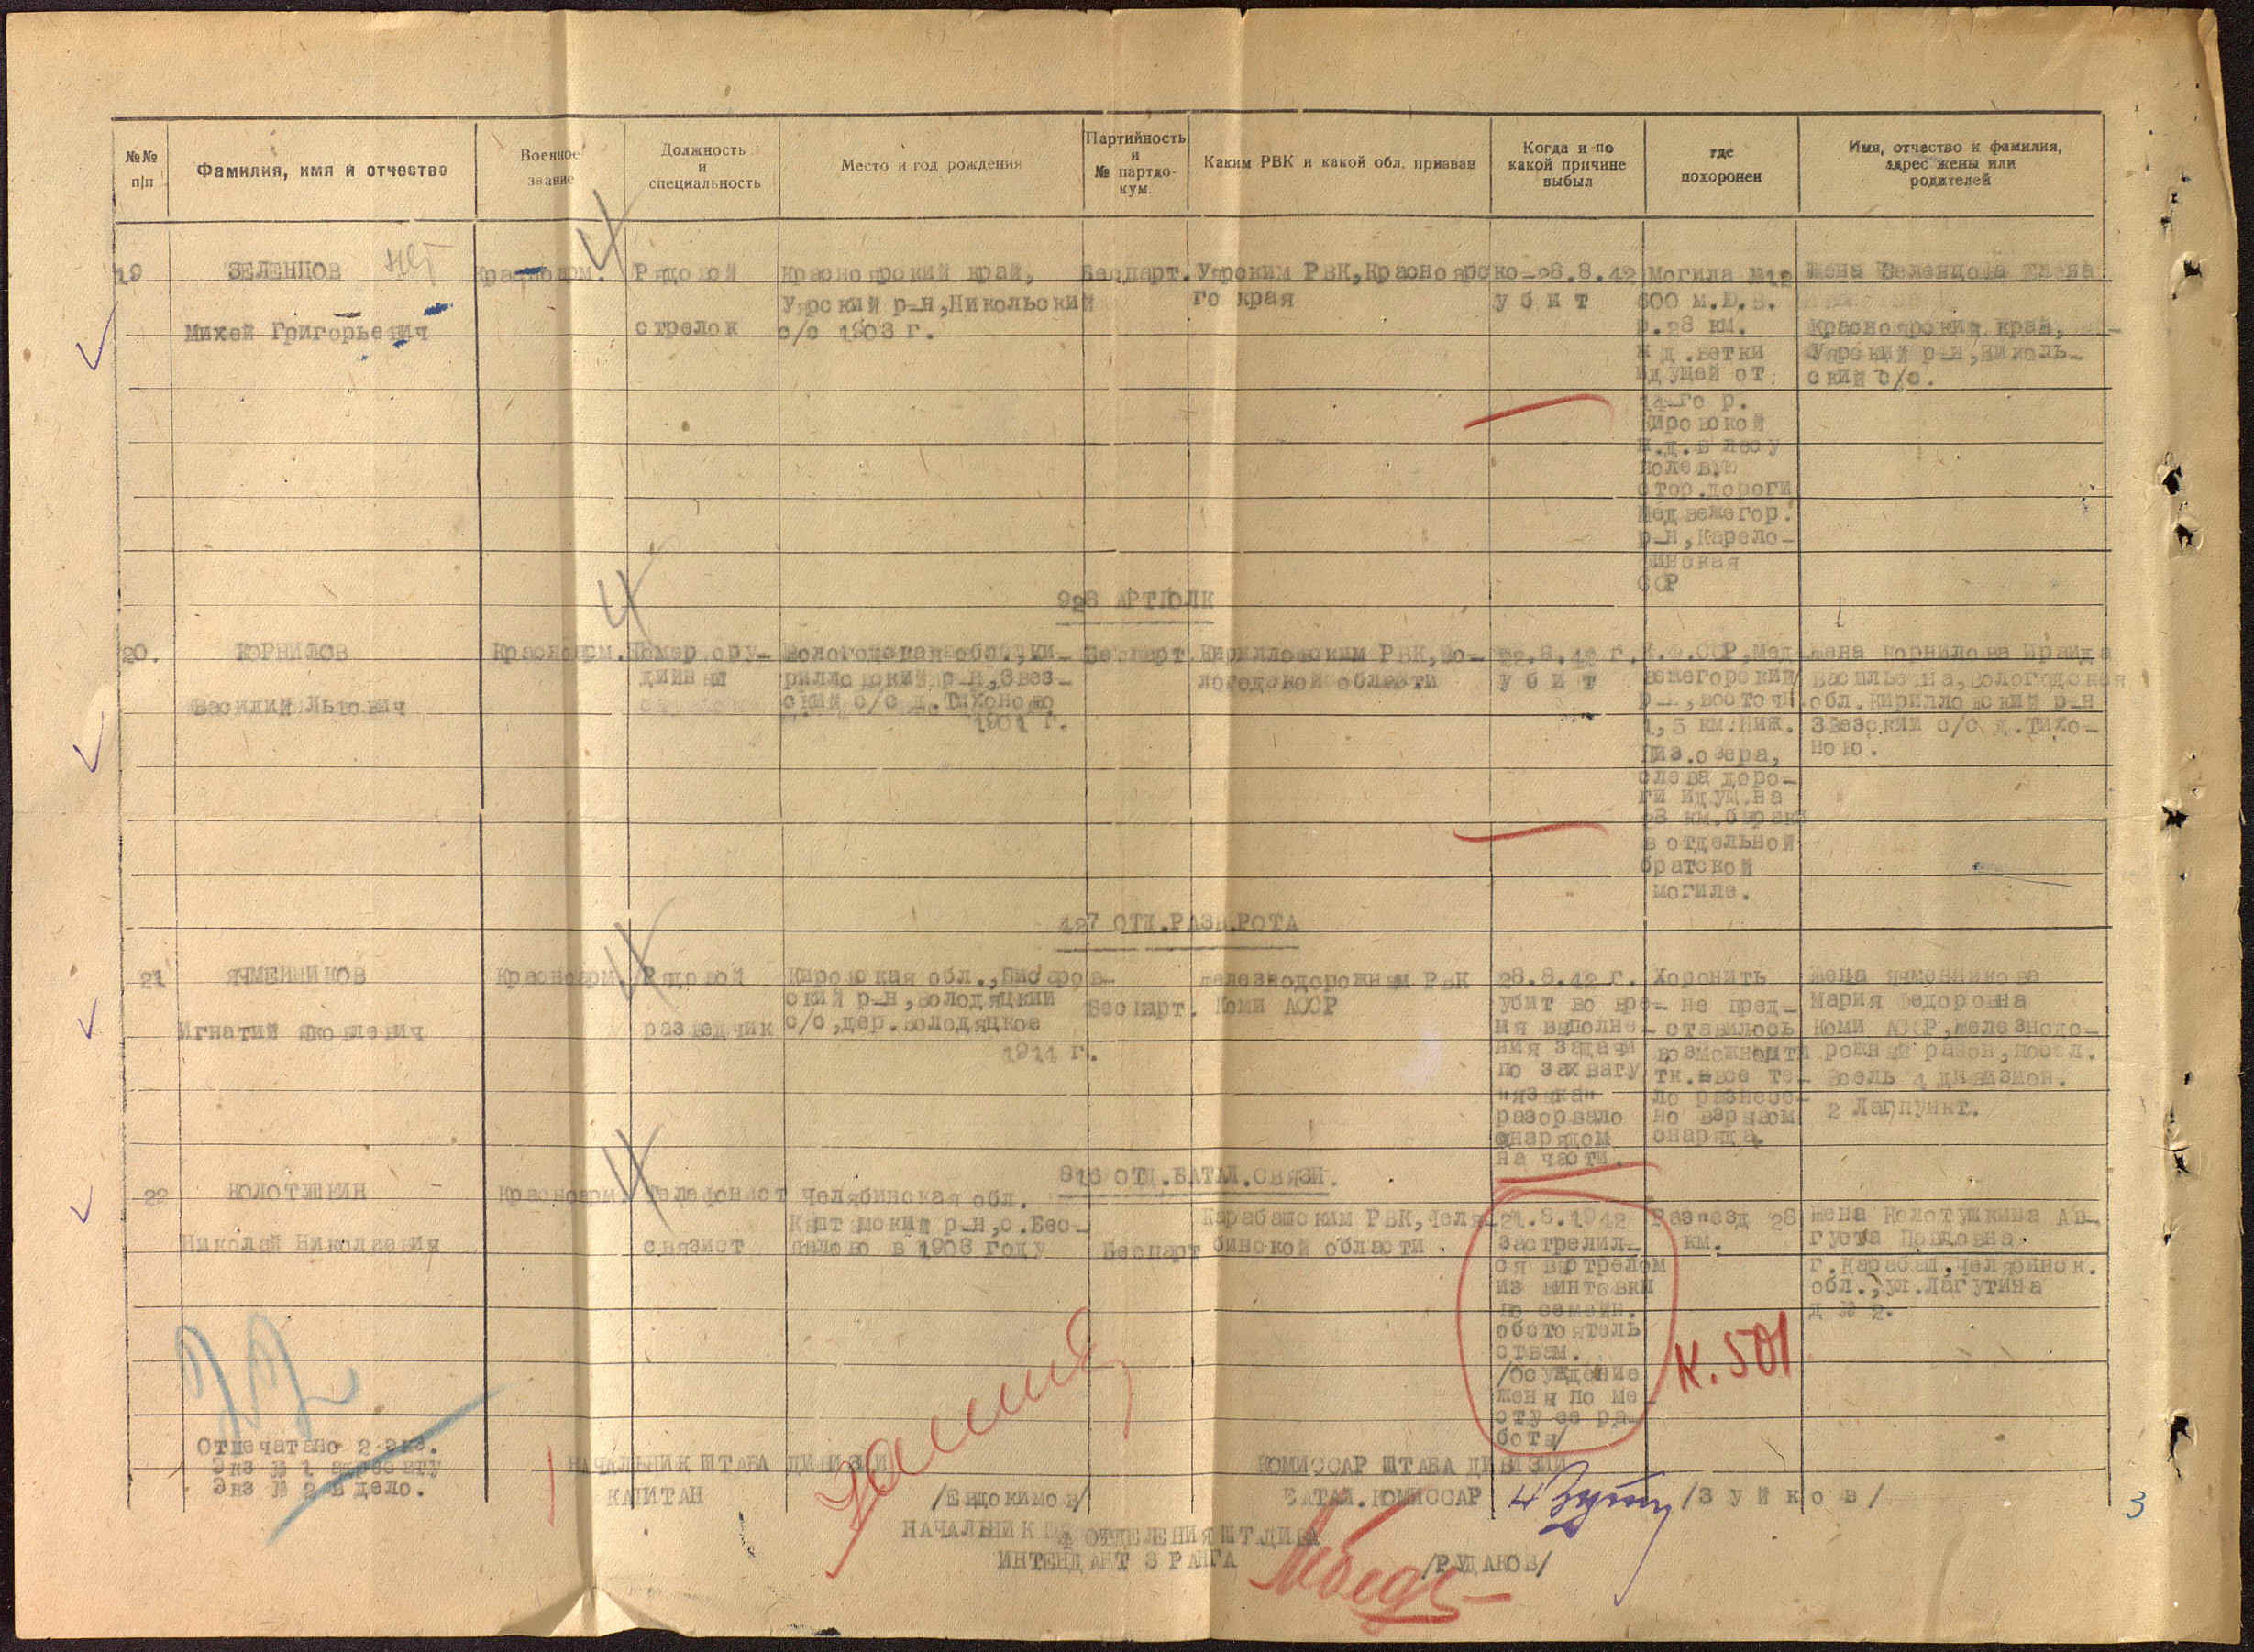 №№ п/п
Фамилия, имя и отчество
Военное звание
Должность и специальность
Место и год рождения
Партийность и № партдокум.
Каким РВК и какой обл. призван
Когда и по какой причине выбыл
где похоронен
Имя, отчество и фамилия, адрес жены или родителей
19
ЗЕЛЕНЦОВ
нет
Михей Григорьевич
Красноарм.
Рядовой
стрелок
Красноярский край,
Уярский р-н, Никольский
с/с 1903 г.
Беспарт.
Уярским РВК, Красноярско-
го края
28.8.42
у б и т
Могила №12
600 м.Ю.В.
р.28 км.
ж д .ветки
идущей от
14-го р.
Кировской
ж.д. в лесу
полевую
стор.дороги
Медвежегор.
р-н, Карело-
Финская
ССР
Жена Зеленцова
Красноярский край,
Уярский р-н, Николь-
ский с/с.
928 АРТПОЛК
20.
КОРНИЛОВ
Василий Львович
Красноарм.
Номер ору-
дийный
Вологодская обл., Ки-
рилловский р-н, Звез-
ский с/с д. Тихоново
1901 г.
Беспарт
Кирилловским РВК, Во-
логодской области
22.8.42 г.
у б и т
К.Ф.ССР, Мед-
вежегорский
р-н, восточн.
1,5 км. Ниж.
озера,
слева доро-
ги идущ. на
28 км. бараки
в отдельной
братской
могиле.
Жена Корнилова Ираида
Васильевна, Вологодская
обл. Кирилловский р-н
Звезский с/с д. Тихо-
ново.
127 ОТД.РАЗВ.РОТА
21
ЯЧМЕННИКОВ
Игнатий Яковлевич
Красноарм.
Рядовой
разведчик
Кировская обл.,
ский р-н, Володяцкий
с/с, дер. Володяцкое
1911 г.
Беспарт.
Железнодорожным РВК
Коми АССР
28.8.42 г.
убит во вре-
мя выполне-
ния задачи
по захвату
"языка"
разорвало
снарядом
на части.
Хоронить
не пред-
ставилось
возможности
тк. все те-
ло разнесе-
но взрывом
снаряда.
Жена Ячменникова
Мария Федоровна
Коми АССР, Железнодо-
рожный район, посел.
Весль 4 дивизион.
2 Лагпункт.
816 ОТД.БАТАЛ.СВЯЗИ.
22
КОЛОТУШКИН
Николай Николаевич
Красноарм.
Телефонист
связист
Челябинская обл.
Кыштымский р-н, с. Бес-
палово в 1908 году
Беспарт
Карабашским РВК, Челя-
бинской области
21.8.1942
застрелил-
ся выстрелом
из винтовки
по семейн.
обстоятель
ствам.
/Осуждение
жены по ме-
сту ее ра-
боты/
Разъезд 28
км.
К. 501
Жена Колотушкина Ав-
густа Павловна
г. Карабаш, Челябинск.
обл., ул. Лагутина
д № 2.
Отпечатано 2 экз.
Экз № 1 адресату
Экз № 2 в дело.
НАЧАЛЬНИК ШТАБА ДИВИЗИИ
КАПИТАН
/Евдокимов/
КОМИССАР ШТАБА ДИВИЗИИ
БАТАЛ.КОМИССАР
/З У Й К О В/
НАЧАЛЬНИК 4 ОТДЕЛЕНИЯ ШТАДИВА
ИНТЕНДАНТ 3 РАНГА
/РУДАКОВ/
3